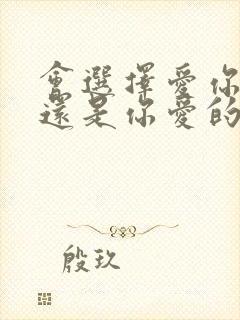 會選擇愛你
還是你愛的
殷玖